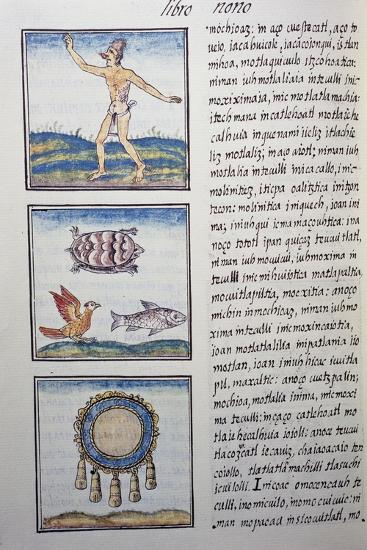 libro nono
mochioaz: in aço cuextecatl, aço to
ueio, iacahuicole, iacacoionqui, ixtlan
mihoa, motlaquicuilo itzcohoatica:
niman iuh motlaliaia in teculli inic
moxiximaia, inic motlatlamachia:
itech mana in catlehoatl motlaieie
calhuia in quenami iieliz itlachie
liz motlaliz; in aço aiotl; niman iuh
motlalia in teculli inicacallo, inic
molinitiez, iticpa oalitztica initzon
tecon: molinitica iniquech, ioan ini
ma; iniuhqui ic mamaçouhtica: ma
noço tototl ipan quiçaz teucuitlatl,
niman iuh mocuicui, iuh moxima in
teculli inic mihuiiotica matlapaltia,
mocuitlapiltia, moxcitia: anoço
michin in mochioaz, niman iuh mo
xima in teculli inic moxincaiotia,
ioan motlatlalilia in ipatlania ito
motlan, ioan iniuh hicac icuitla
pil, maxaltic: anoço cuetzpalin;
mochioa, motlalia inima, inic moxi
ma teculli: in çaço catlehoatl mo
tlaiehecalhuia ioioli: anoço teucui
tlacozcatl iecauiz, chaiaoacaio tenco
coiollo, tlatlatlamachilli tlaxuchi
icuilolli. In icoac omocencauh te
culli, inomicuilo, inomocuicuic: ni
man mopaoaci in xicocuitlatl, mo